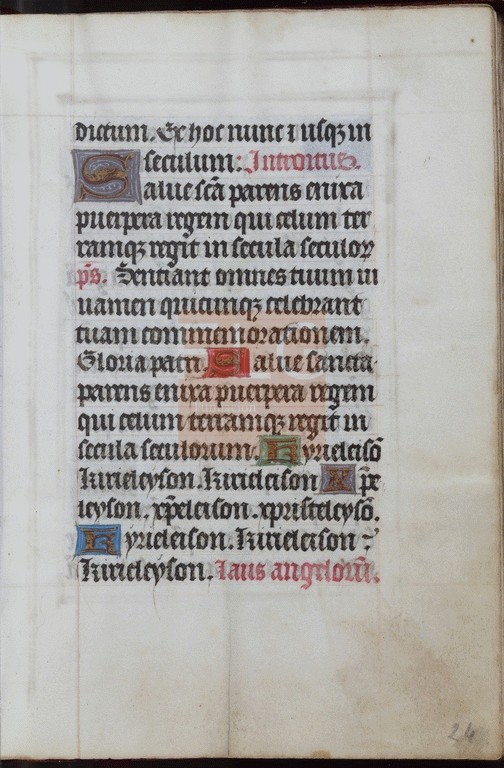 dictum. Ex hoc nunc ⁊ usqꝫ in
seculum: Introitus.
Salue scā parens enixa
puerpera regem qui celum ter
ramqꝫ regit in secula seculoꝝ
p̄s. Sentiant omnes tuum iu
uamen quicumqꝫ celebrant
tuam commemorationem.
Gloria patri. Salue sancta
parens enixa puerpera regem
qui celum terramqꝫ regit in
secula seculorum. Kyrieleisō
kirieleyson. kirieleison Xp̄e
leyson. xp̄eleison. xpristeleysō.
Kyrieleison. kirieleison ⁊
kirieleyson. Laus angelorū.
24